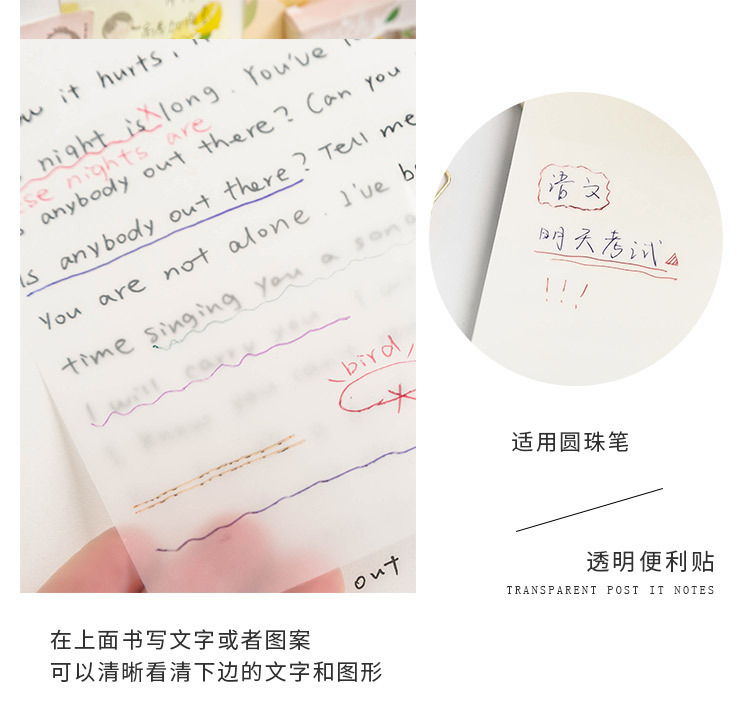 it hurts,
night is long. You've
se nights are
anybody out there? Can you
is anybody out there? Tell me
You are not alone. I've b
time singing you a song
I will carry you
I know you
bird
out
语文
明天考试
!!!
适用圆珠笔
透明便利贴
TRANSPARENT POST IT NOTES
在上面书写文字或者图案
可以清晰看清下边的文字和图形